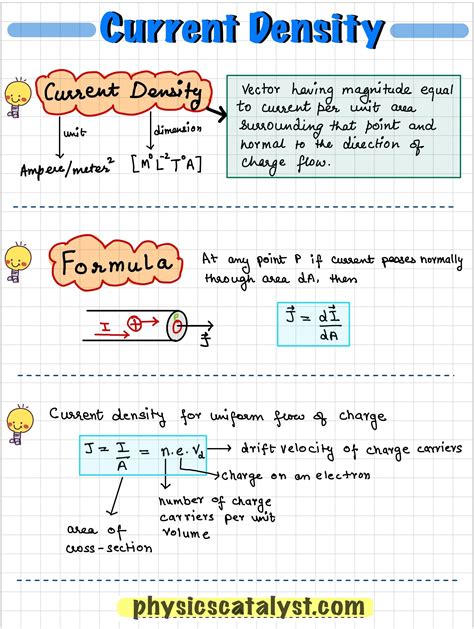 Current Density
Current Density
unit
dimension
Ampere/meter²
[M⁰L⁻²T⁰A]
Vector having magnitude equal
to current per unit area
surrounding that point and
normal to the direction of
charge flow.
Formula
At any point P if current passes normally
through area dA, then
I
+
P
J⃗
J⃗ = dI⃗/dA
Current density for uniform flow of charge
J = I/A = n.e.Vd
drift velocity of charge carriers
charge on an electron
number of charge
carriers per unit
volume
area of
cross-section
physicscatalyst.com